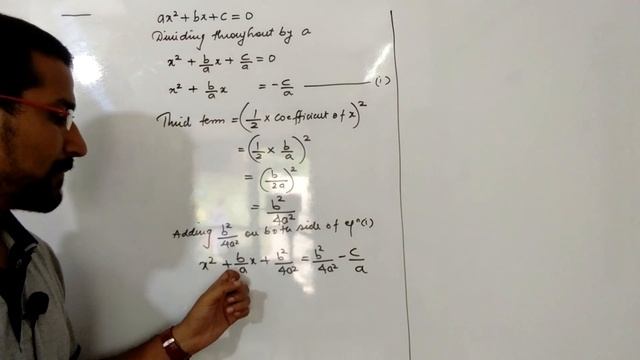 ax² + bx + c = 0
Dividing throughout by a
x² + b/a x + c/a = 0
x² + b/a x = -c/a ——— (i)
Third term = (1/2 × coefficient of x)²
= (1/2 × b/a)²
= (b/2a)²
= b²/4a²
Adding b²/4a² on both side of eqⁿ(i)
x² + b/a x + b²/4a² = b²/4a² - c/a